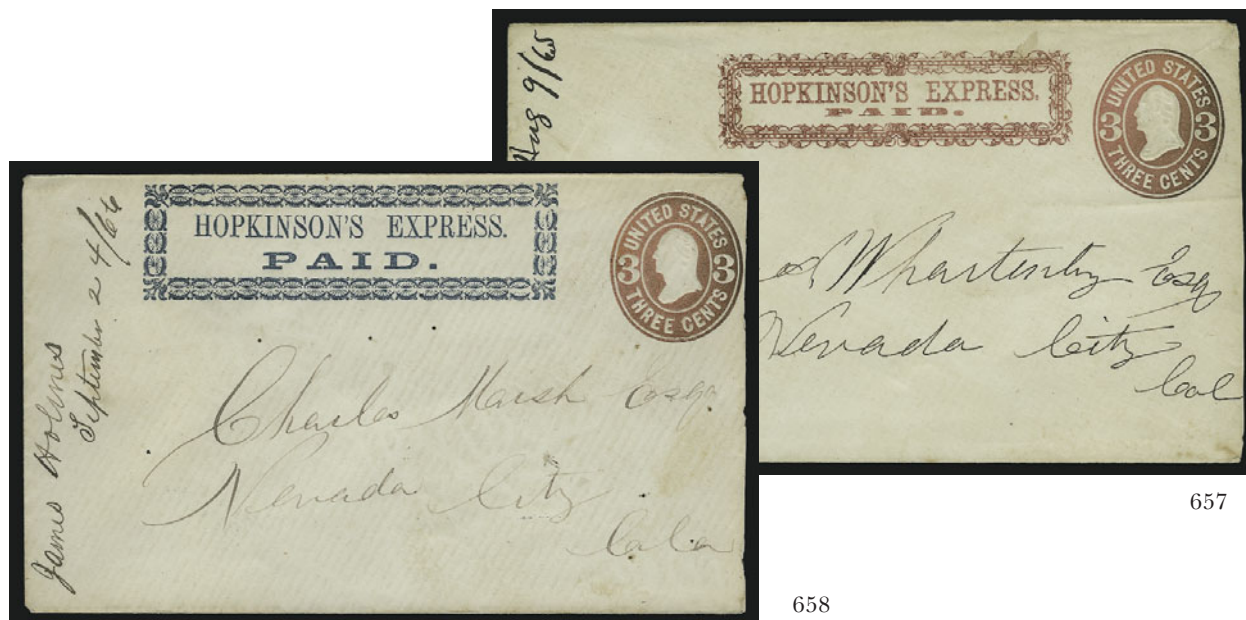 Aug 9/65
HOPKINSON'S EXPRESS.
PAID.
UNITED STATES
3 3
THREE CENTS
Whartenby Esq
Nevada City
Cal
657
James Holmes
September 24/66
HOPKINSON'S EXPRESS.
PAID.
UNITED STATES
3 3
THREE CENTS
Charles Marsh Esq
Nevada City
Cala
658